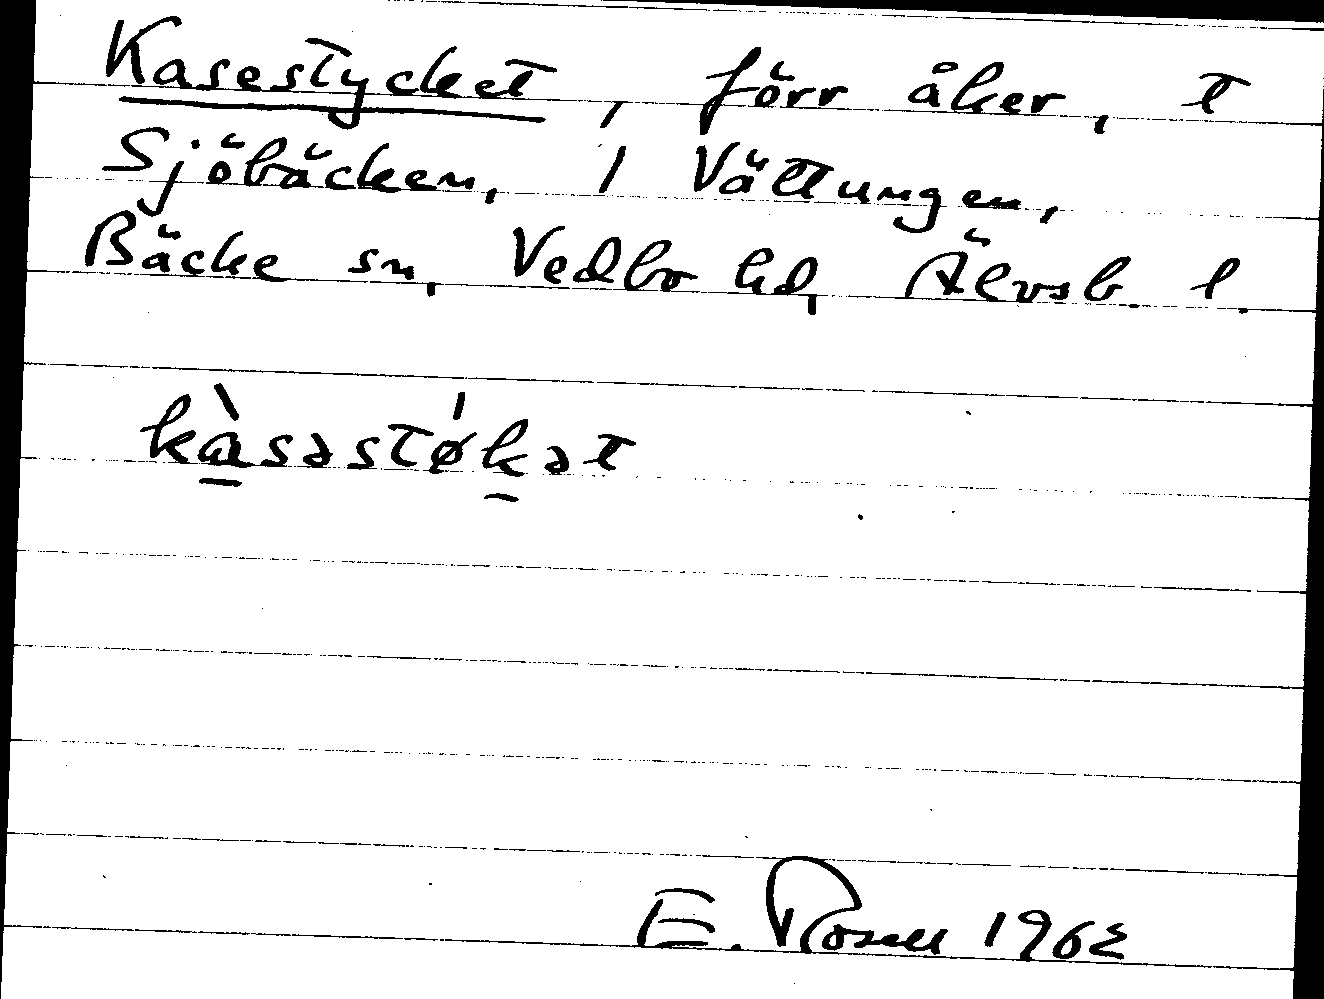 Kasestycket, förr åker, t
Sjöbäcken, 1 Vättungen,
Bäcke sn, Vedbo hd, Älvsb. l.
kàsəstǿkət
E. Rosell 1962